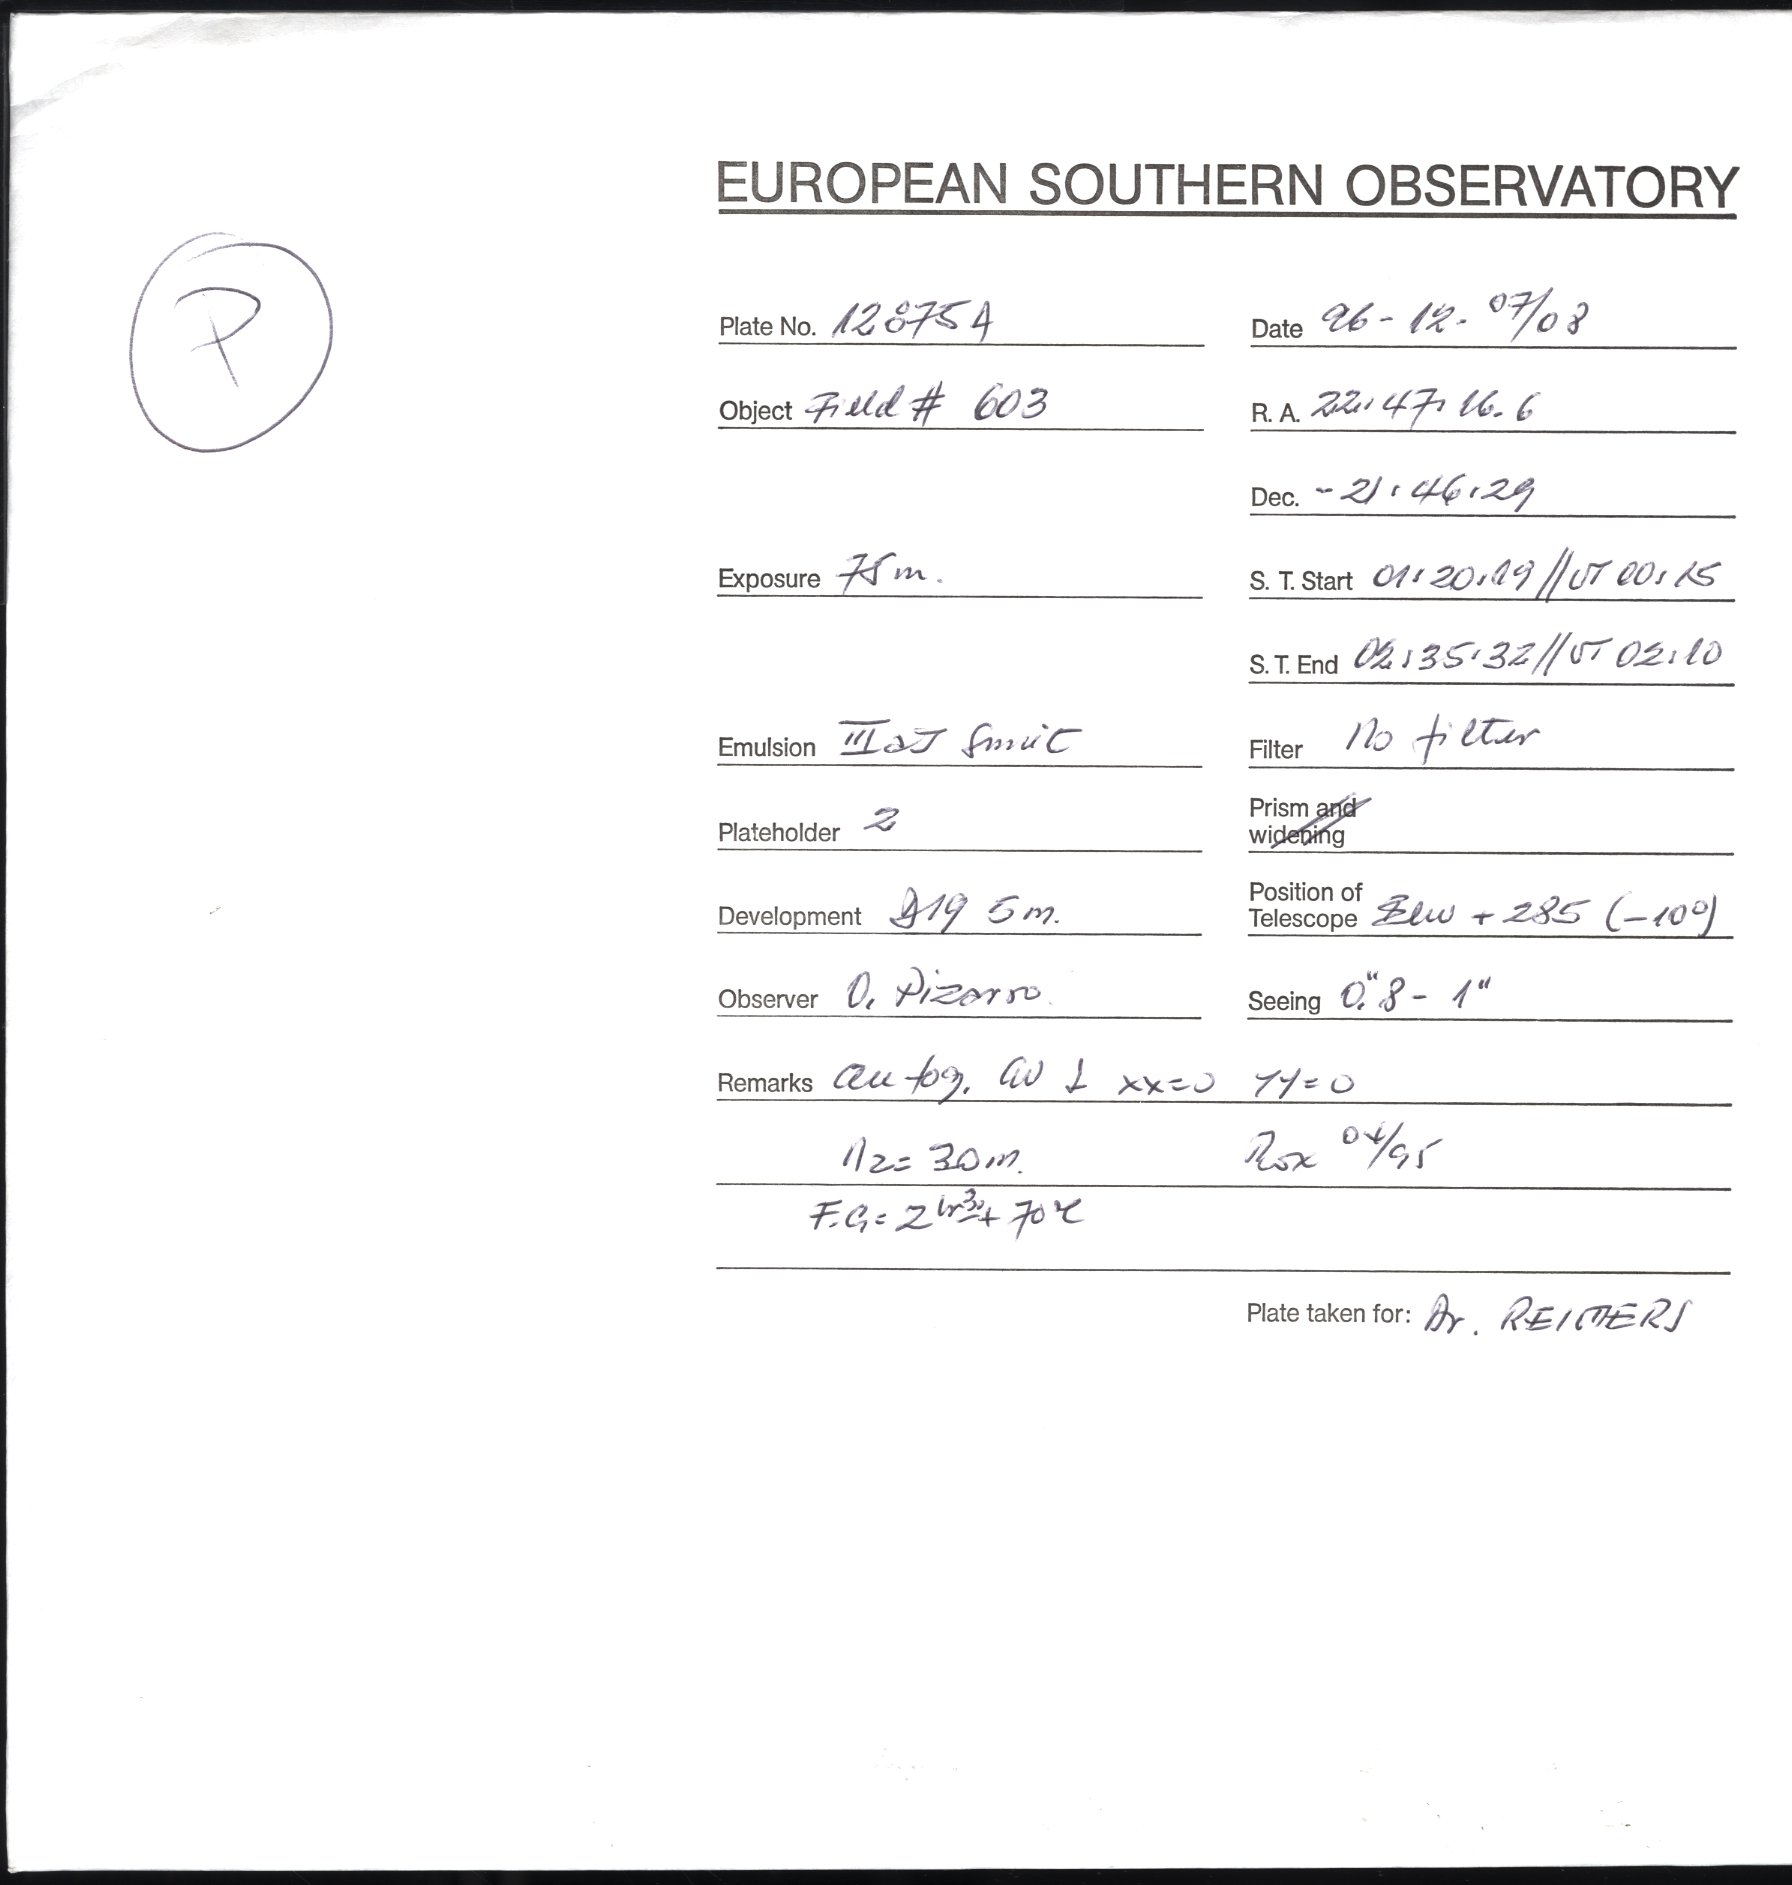 EUROPEAN SOUTHERN OBSERVATORY
P
Plate No. 12875A
Date 96-12-07/08
Object Field # 603
R. A. 22:47:16.6
Dec. -21:46:29
Exposure 75m.
S. T. Start 01:20:19//UT 00:15
S. T. End 02:35:32//UT 02:10
Emulsion IIIaJ
Filter No filter
Plateholder 2
Prism and
widening
Development D19 5m.
Position of
Telescope + 285 (-10°)
Observer O. Pizarro.
Seeing 0."8 - 1"
Remarks autog. xx=0 YY=0
N2= 30m.
F.G= 2 + 70°C
Plate taken for: Dr. REIMERS